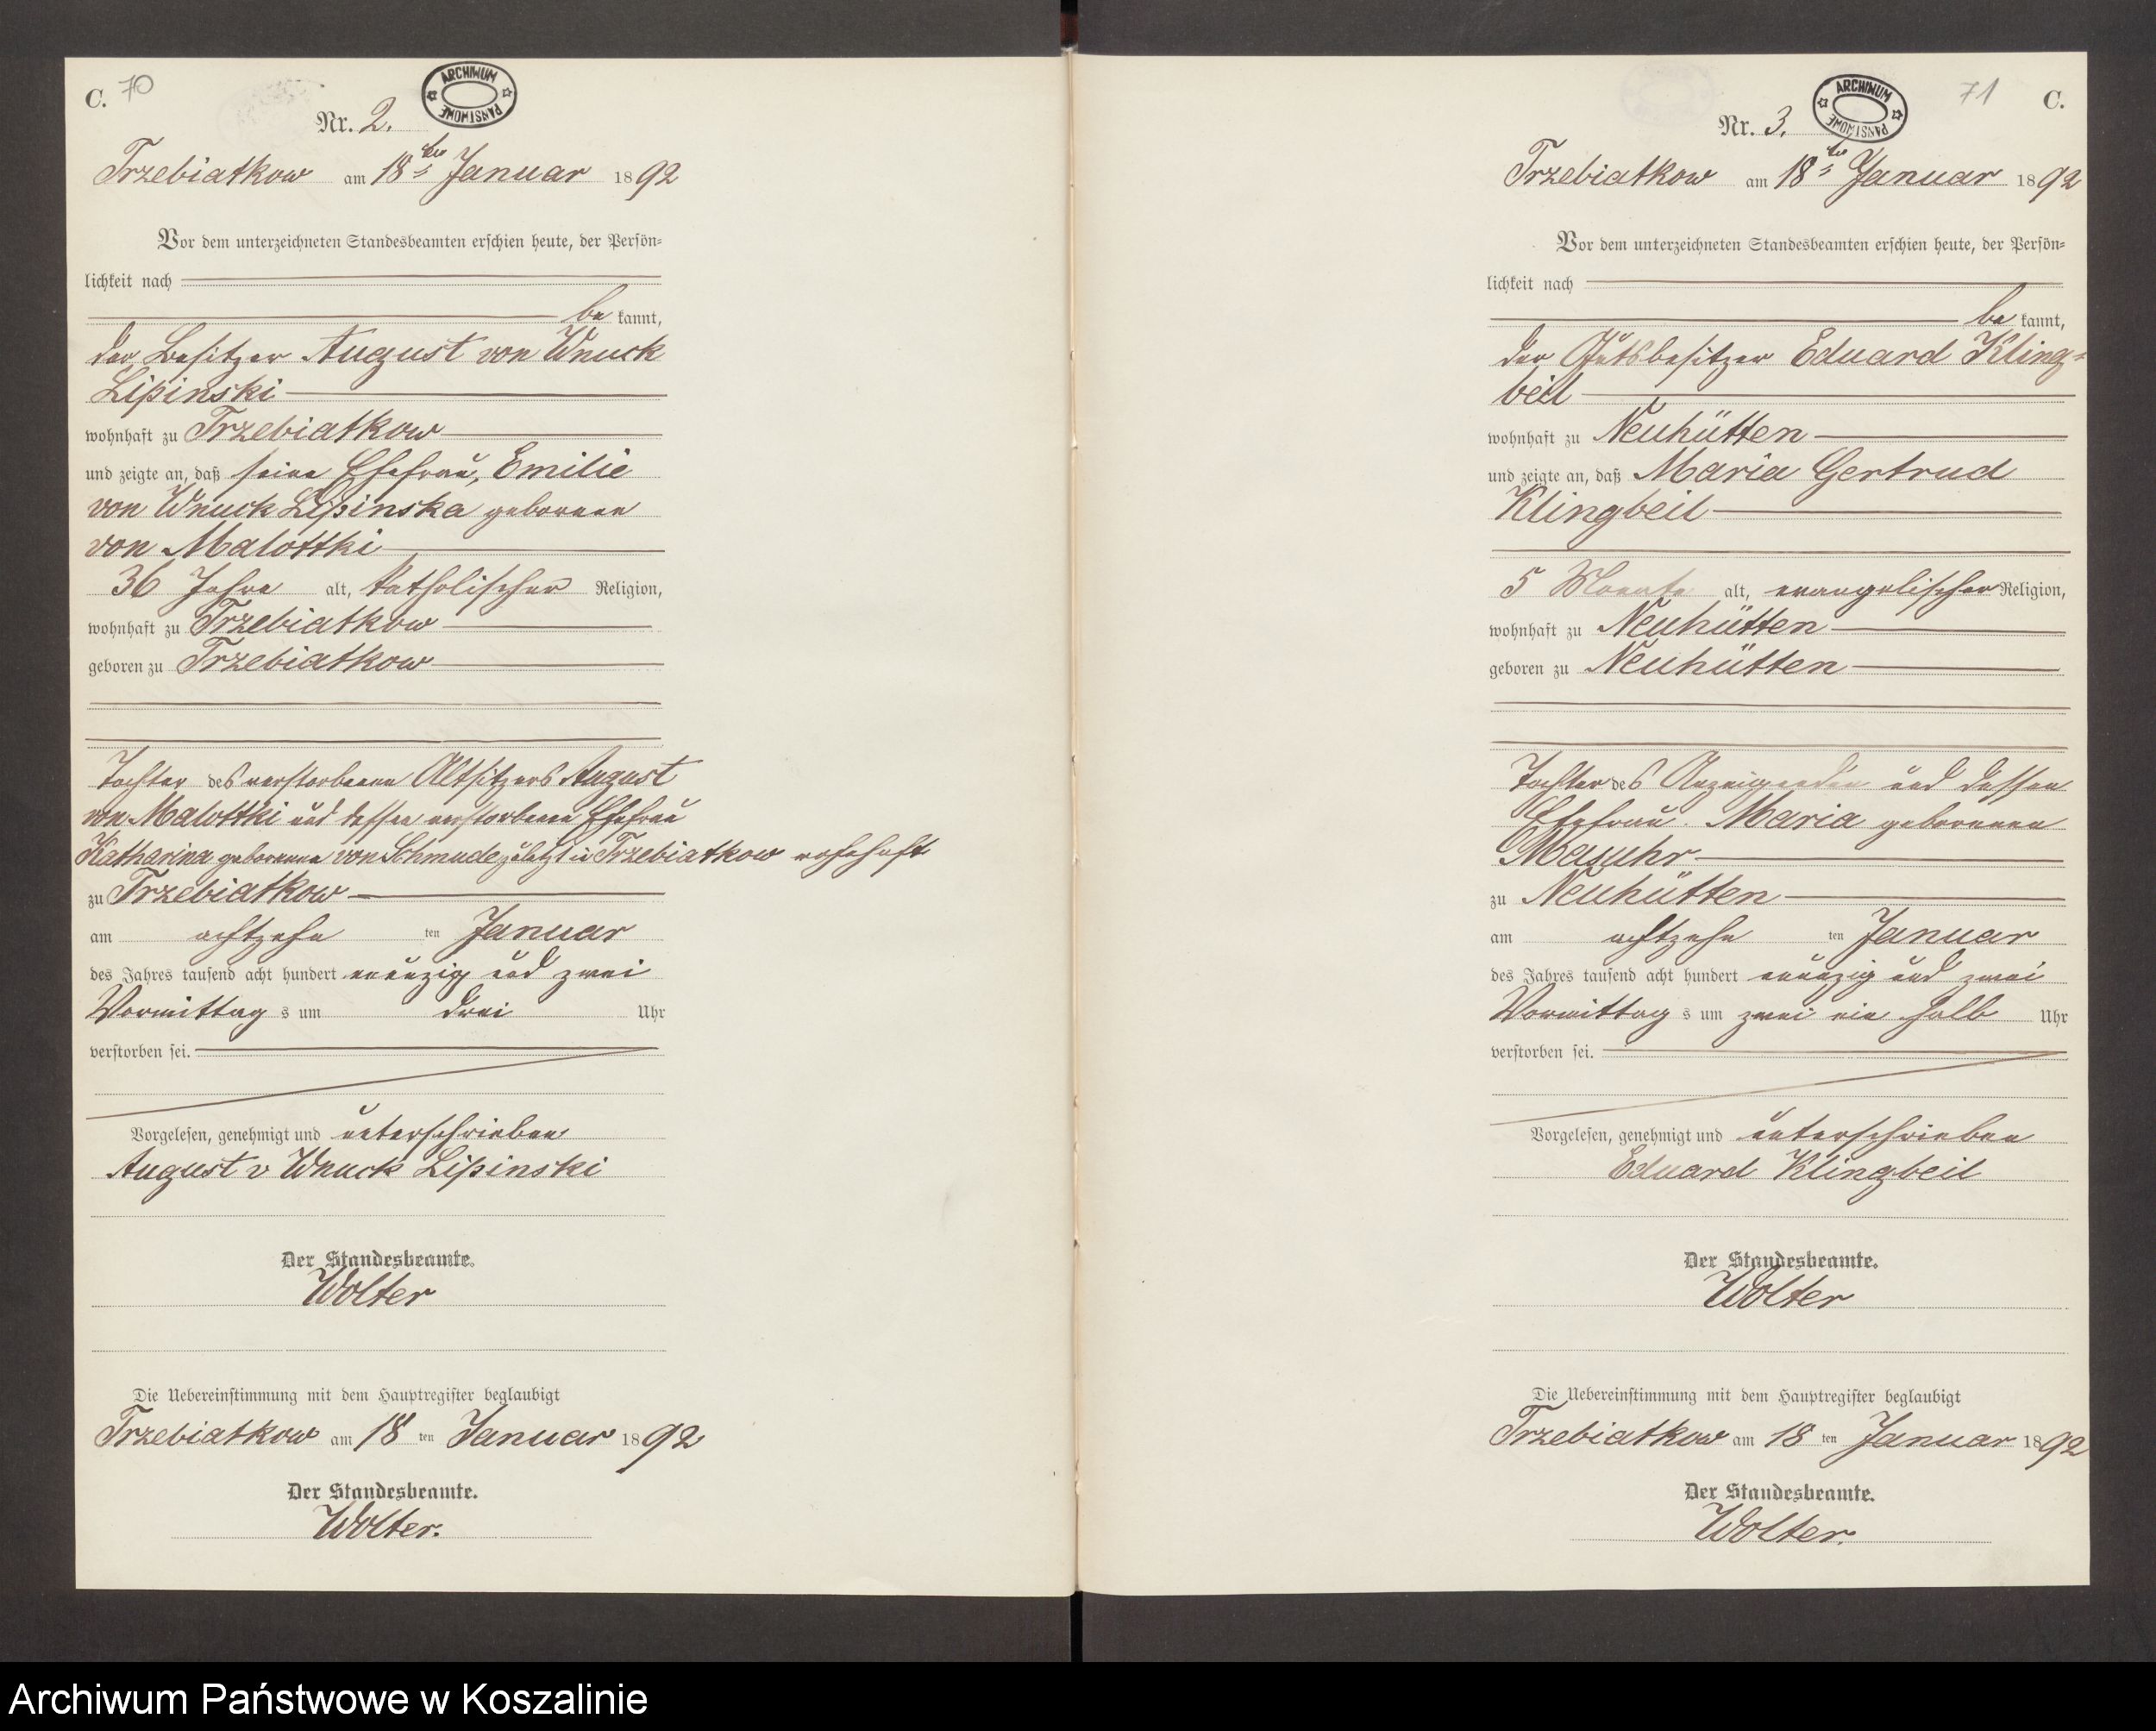 C. 70
ARCHIWUM PAŃSTWOWE
Nr. 2.
Trzebiatkow am 18ten Januar 1892
Vor dem unterzeichneten Standesbeamten erschien heute, der Persön-
lichkeit nach
be kannt,
der Besitzer August von Wnuck
Lipinski
wohnhaft zu Trzebiatkow
und zeigte an, daß seine Ehefrau, Emilie
von Wnuck Lipinska geborene
von Malottki
36 Jahre alt, katholischer Religion,
wohnhaft zu Trzebiatkow
geboren zu Trzebiatkow
Tochter des verstorbenen Altsitzers August
von Malottki und dessen verstorbenen Ehefrau
Katharina geborenen von Schmude zuletzt in Trzebiatkow wohnhaft
zu Trzebiatkow
am achtzehn ten Januar
des Jahres tausend acht hundert neunzig und zwei
Vormittag s um drei Uhr
verstorben sei.
Vorgelesen, genehmigt und unterschrieben
August v Wnuck Lipinski
Der Standesbeamte.
Wolter
Die Uebereinstimmung mit dem Hauptregister beglaubigt
Trzebiatkow am 18 ten Januar 1892
Der Standesbeamte.
Wolter.
71 C.
ARCHIWUM PAŃSTWOWE
Nr. 3.
Trzebiatkow am 18ten Januar 1892
Vor dem unterzeichneten Standesbeamten erschien heute, der Persön-
lichkeit nach
be kannt,
der Gutsbesitzer Eduard Kling-
beil
wohnhaft zu Neuhütten
und zeigte an, daß Maria Gertrud
Klingbeil
5 Monate alt, evangelischer Religion,
wohnhaft zu Neuhütten
geboren zu Neuhütten
Tochter des Anzeigenden und dessen
Ehefrau Maria geborenen
Masuhr
zu Neuhütten
am achtzehn ten Januar
des Jahres tausend acht hundert neunzig und zwei
Vormittag s um zwei ein halb Uhr
verstorben sei.
Vorgelesen, genehmigt und unterschrieben
Eduard Klingbeil
Der Standesbeamte.
Wolter
Die Uebereinstimmung mit dem Hauptregister beglaubigt
Trzebiatkow am 18 ten Januar 1892
Der Standesbeamte.
Wolter.
Archiwum Państwowe w Koszalinie